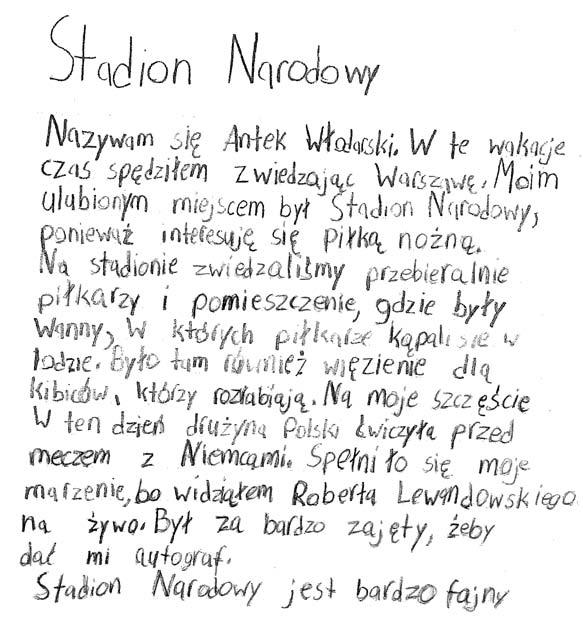 Stadion Narodowy
Nazywam się Antek Włodarski. W te wakacje
czas spędziłem zwiedzając Warszawę. Moim
ulubionym miejscem był Stadion Narodowy,
ponieważ interesuję się piłką nożną.
Na stadionie zwiedzaliśmy przebieralnie
piłkarzy i pomieszczenie, gdzie były
wanny, w których piłkarze kąpali sie w
lodzie. Było tam również więzienie dla
kibiców, którzy rozrabiają. Na moje szczęście
w ten dzień drużyna Polski ćwiczyła przed
meczem z Niemcami. Spełniło się moje
marzenie, bo widziałem Roberta Lewandowskiego
na żywo. Był za bardzo zajęty, żeby
dać mi autograf.
Stadion Narodowy jest bardzo fajny